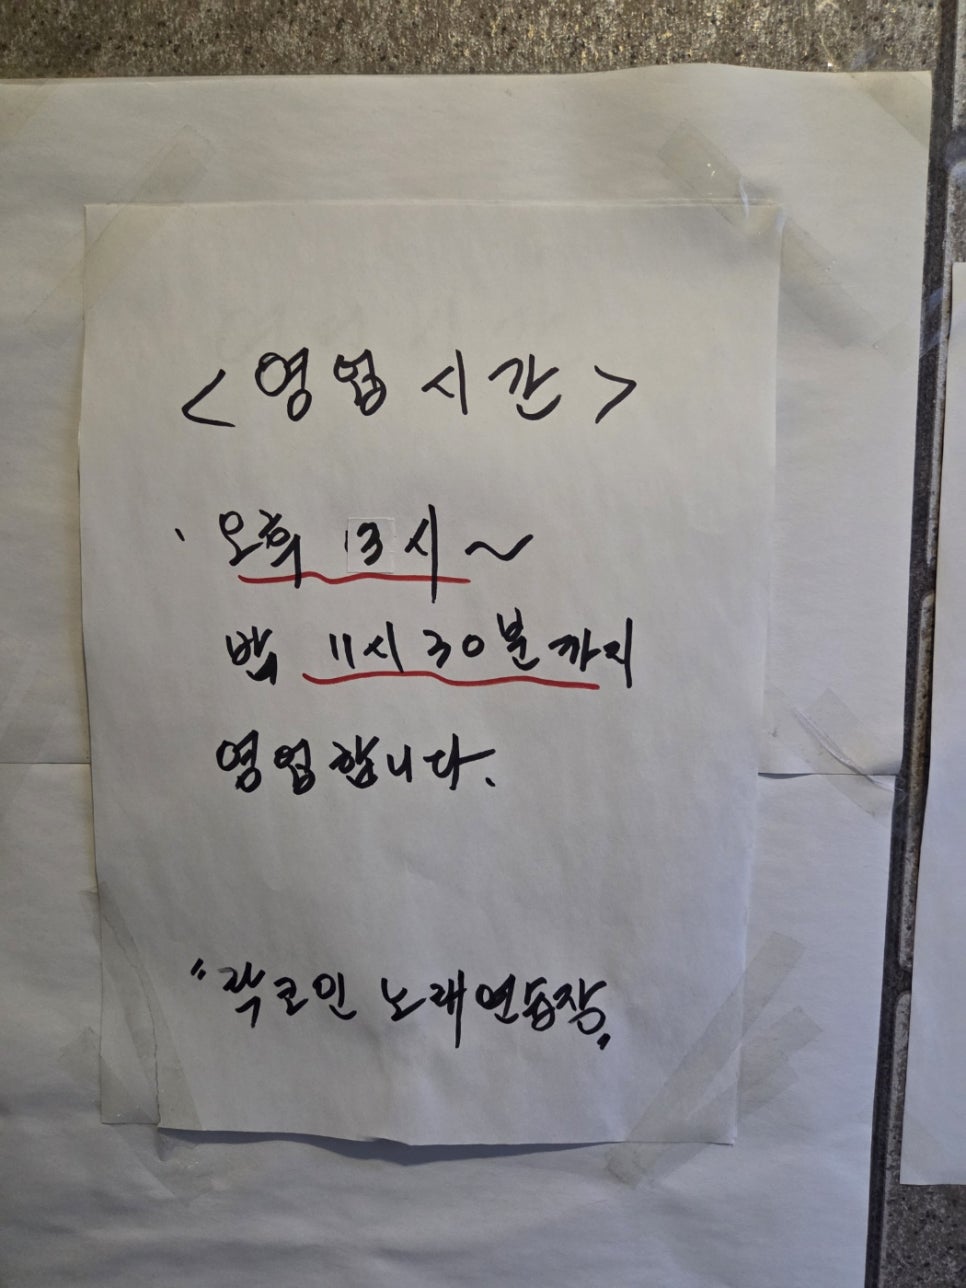 <영업시간>
오후 3시~
밤 11시 30분까지
영업합니다.
"락코인 노래연습장"